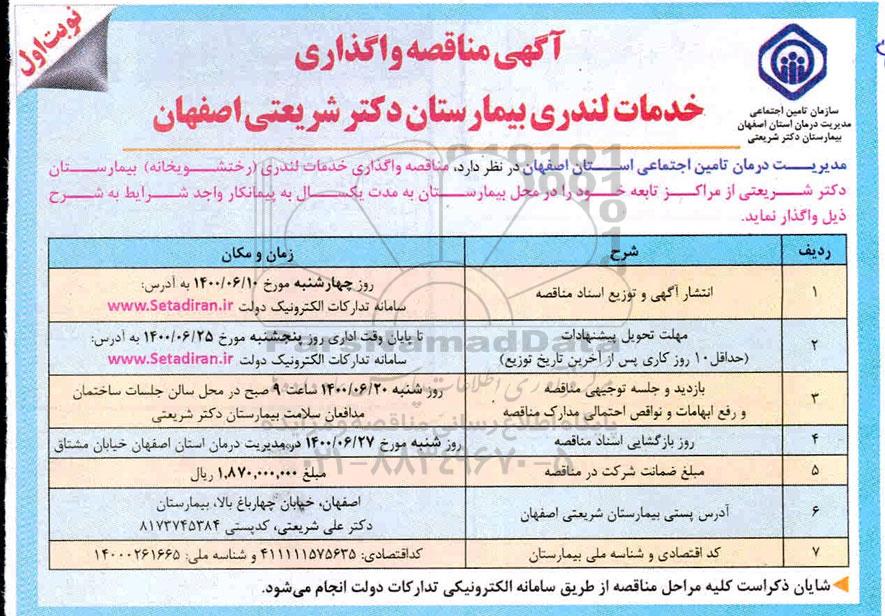 نوبت اول
آگهی مناقصه واگذاری
خدمات لندری بیمارستان دکتر شریعتی اصفهان
سازمان تامین اجتماعی
مدیریت درمان استان اصفهان
بیمارستان دکتر شریعتی
مدیریت درمان تامین اجتماعی استان اصفهان در نظر دارد، مناقصه واگذاری خدمات لندری (رختشویخانه) بیمارستان
دکتر شریعتی از مراکز تابعه خود را در محل بیمارستان به مدت یکسال به پیمانکار واجد شرایط به شرح
ذیل واگذار نماید.
ردیف شرح زمان و مکان
۱ انتشار آگهی و توزیع اسناد مناقصه روز چهارشنبه مورخ ۱۴۰۰/۰۶/۱۰ به آدرس:
سامانه تدارکات الکترونیک دولت www.Setadiran.ir
۲ مهلت تحویل پیشنهادات تا پایان وقت اداری روز پنجشنبه مورخ ۱۴۰۰/۰۶/۲۵ به آدرس:
(حداقل ۱۰ روز کاری پس از آخرین تاریخ توزیع) سامانه تدارکات الکترونیک دولت www.Setadiran.ir
۳ بازدید و جلسه توجیهی مناقصه روز شنبه ۱۴۰۰/۰۶/۲۰ ساعت ۹ صبح در محل سالن جلسات ساختمان
و رفع ابهامات و نواقص احتمالی مدارک مناقصه مدافعان سلامت بیمارستان دکتر شریعتی
۴ روز بازگشایی اسناد مناقصه روز شنبه مورخ ۱۴۰۰/۰۶/۲۷ در مدیریت درمان استان اصفهان خیابان مشتاق
۵ مبلغ ضمانت شرکت در مناقصه مبلغ ۱,۸۷۰,۰۰۰,۰۰۰ ریال
۶ آدرس پستی بیمارستان شریعتی اصفهان اصفهان، خیابان چهارباغ بالا، بیمارستان
دکتر علی شریعتی، کدپستی ۸۱۷۳۷۴۵۳۸۴
۷ کد اقتصادی و شناسه ملی بیمارستان کداقتصادی: ۴۱۱۱۱۱۵۷۵۶۳۵ و شناسه ملی: ۱۴۰۰۰۲۶۱۶۶۵
شایان ذکر است کلیه مراحل مناقصه از طریق سامانه الکترونیکی تدارکات دولت انجام می‌شود.
ParsNamadData
پایگاه اطلاع رسانی مناقصه و مزایده
۰۲۱-۸۸۳۴۹۶۷۰-۵